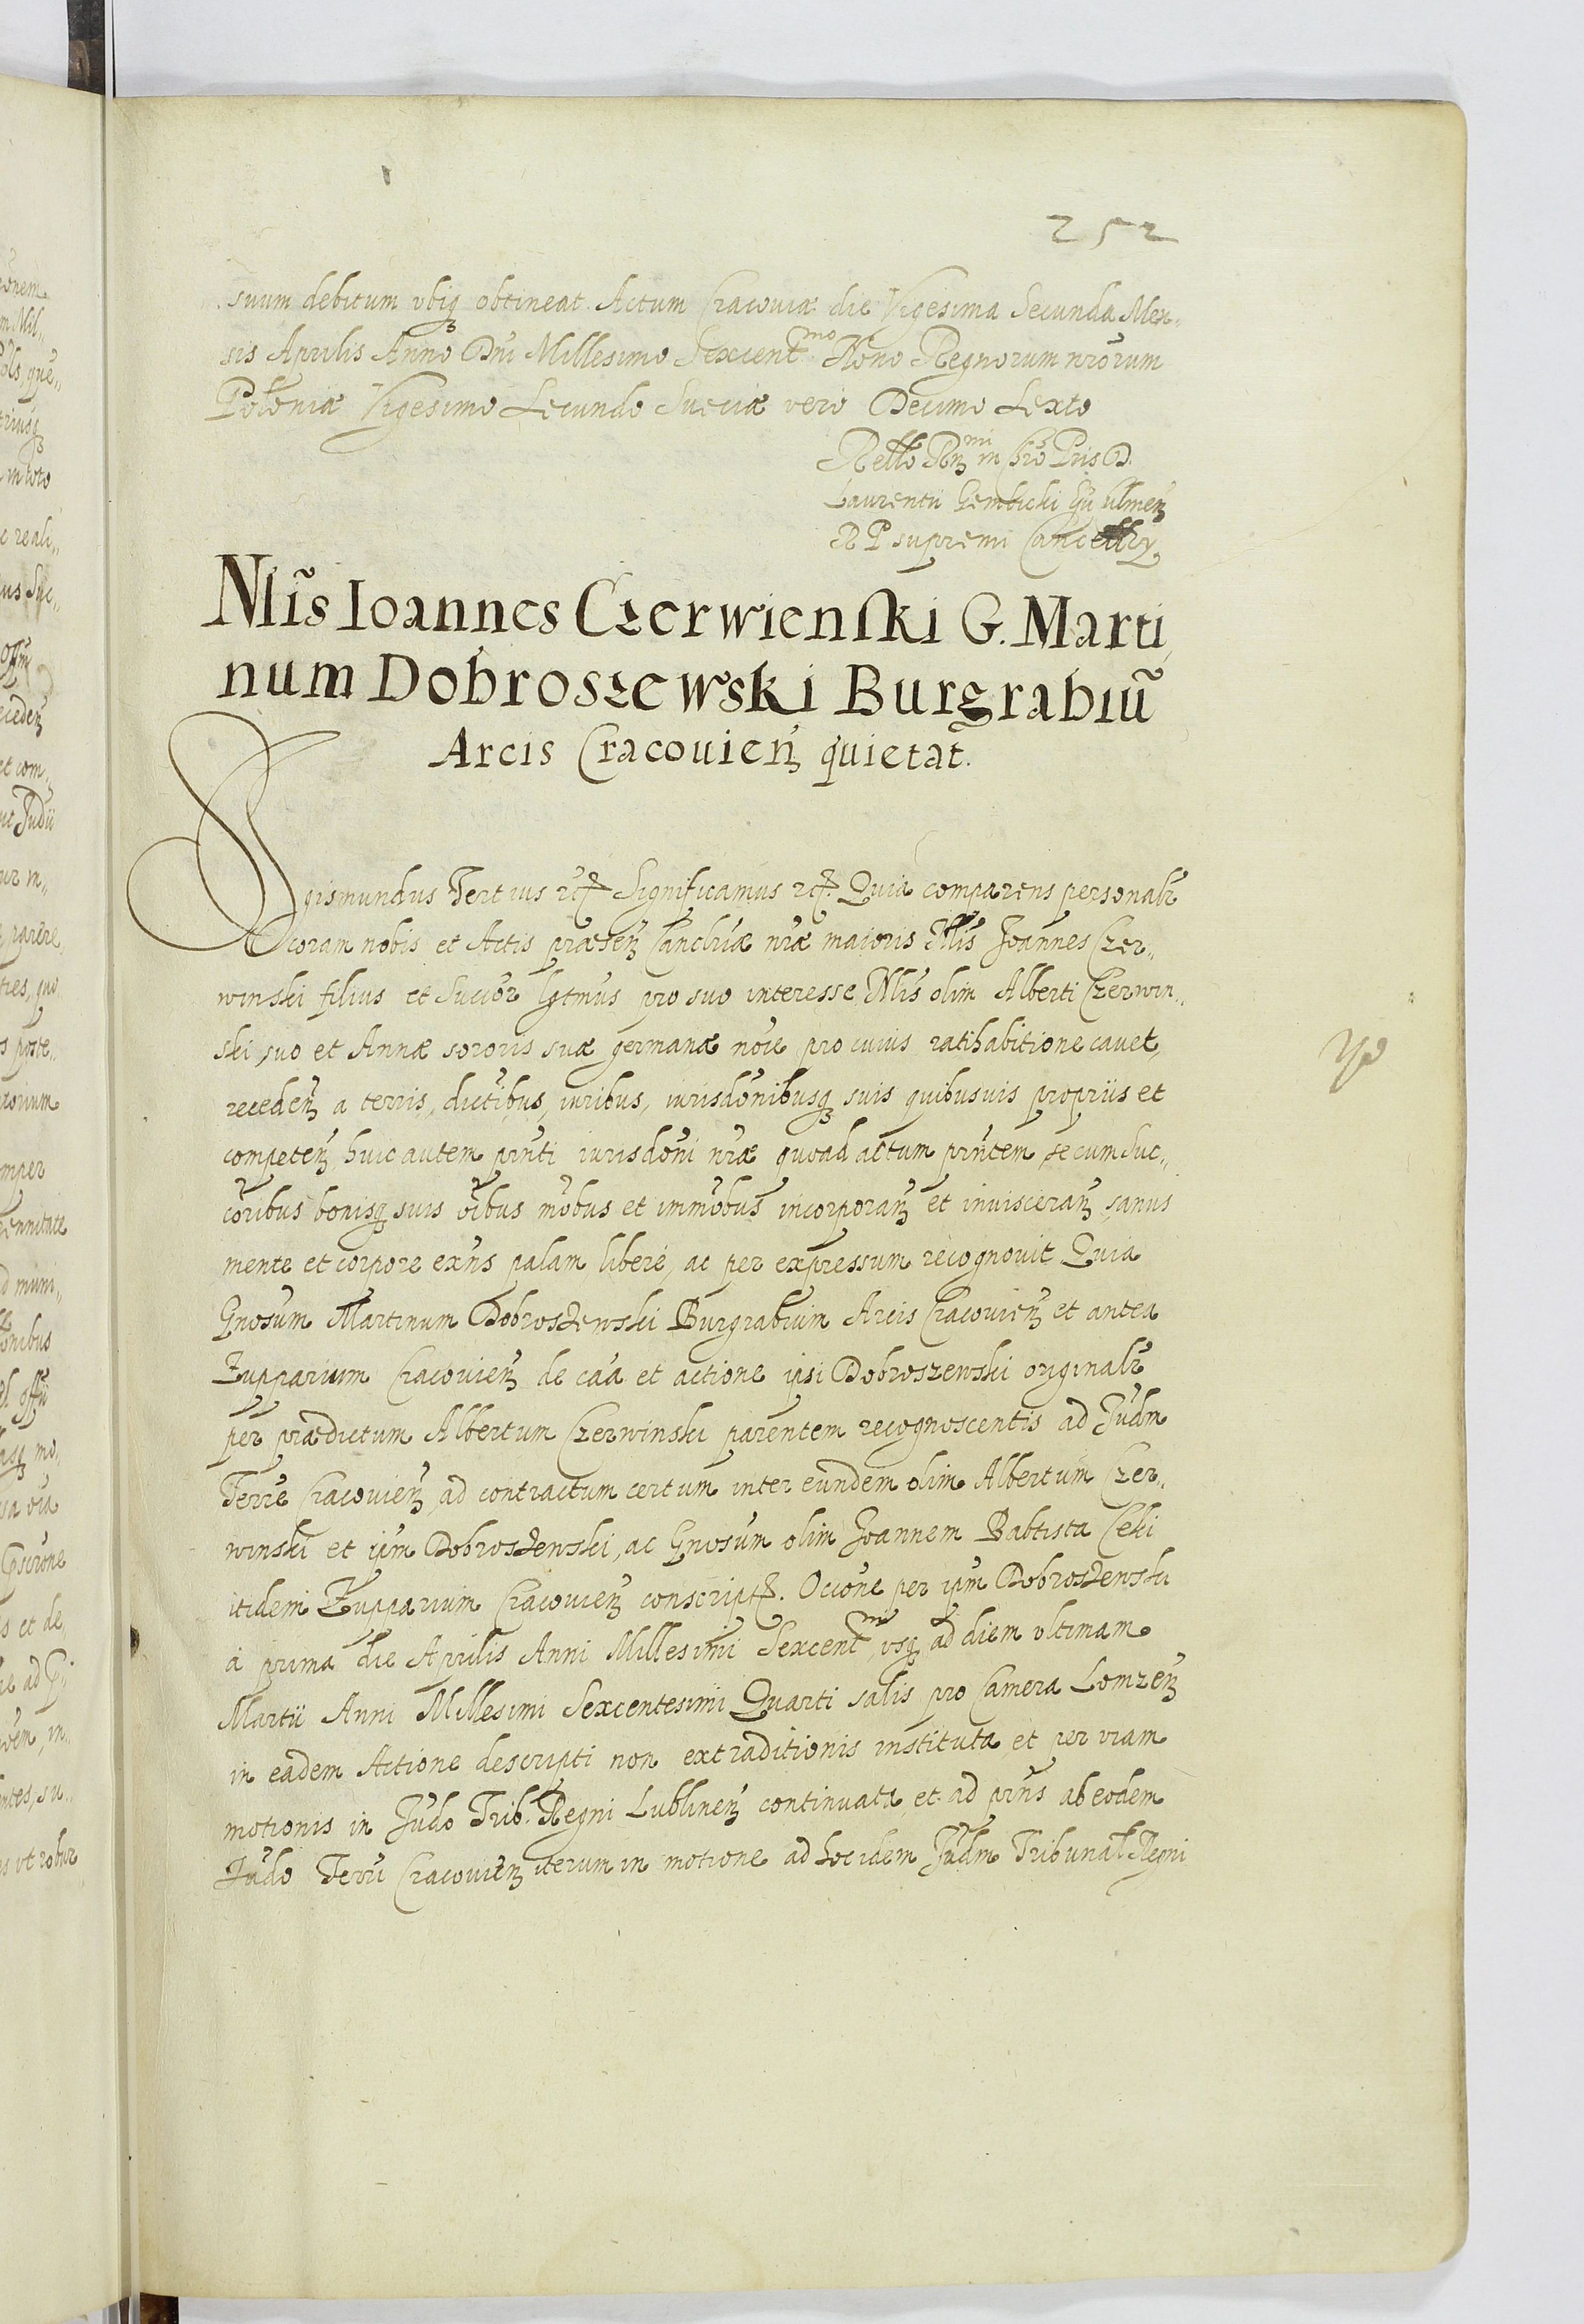 252
suum debitum vbiq obtineat. Actum Cracoviæ die Vigesima Secunda Men„
sis Aprilis Anno Dni Millesimo Sexcent^mo Nono Regnorum nrorum
Poloniæ Vigesimo Secundo Sueciæ vero Decimo Sexto
Rello Rm^mi in Chro Pris D.
Laurentii Gembicki Epi Culmeñ
R P supremi Cancellry
Nlis Ioannes Czerwienski G. Marti„
num Dobroszewski Burgrabiũ
Arcis Cracovieñ quietat.
Sigismundus Tertius etc Significamus etc. Quia comparens personalr
coram nobis et Actis præseñ Cancelriæ nræ maioris Nlis Joannes Czer„
winski filius et Succor lgtmus pro suo interesse Nlis olim Alberti Czerwin„
ski, suo et Annæ sororis suæ germanæ noie, pro cuius ratihabitione cavet,
recedeñ a terris, dictibus, iuribus, iurisdonibusq suis quibusuis propriis et
competeñ huic autem pnti iurisdoni nræ quoad actum pntem, se cum Suc„
coribus bonisq suis oibus mobus et immobus incorporañ et invisceran̄, sanus
mente et corpore exns palam libere, ac per expressum recognovit Quia
Gnosum Martinum Dobroszewski Burgrabium Arcis Cracovieñ et antea
Zupparium Cracovieñ de caa et actione ipsi Dobroszewski originalr
per prædictum Albertum Czerwinski parentem recognoscentis ad Judm
Terre Cracovieñ ad contractum certum inter eundem olim Albertum Czer„
winski et ipm Dobroszewski, ac Gnosum olim Joannem Babtista Ceki
itidem Zupparium Cracovieñ conscript. Occone per ipm Dobroszewski
a prima die Aprilis Anni Millesimi Sexcent^mi vsq ad diem vltimam
Martii Anni Millesimi Sexcentesimi Quarti salis pro Camera Lomzeñ
in eadem Actione descripti non extraditionis instituta, et per viam
motionis in Judo Trib. Regni Lublineñ continuata, et ad prns ab eodem
Judo Terri Cracovieñ iterum in motione ad hoc idem Judm Tribunal Regni